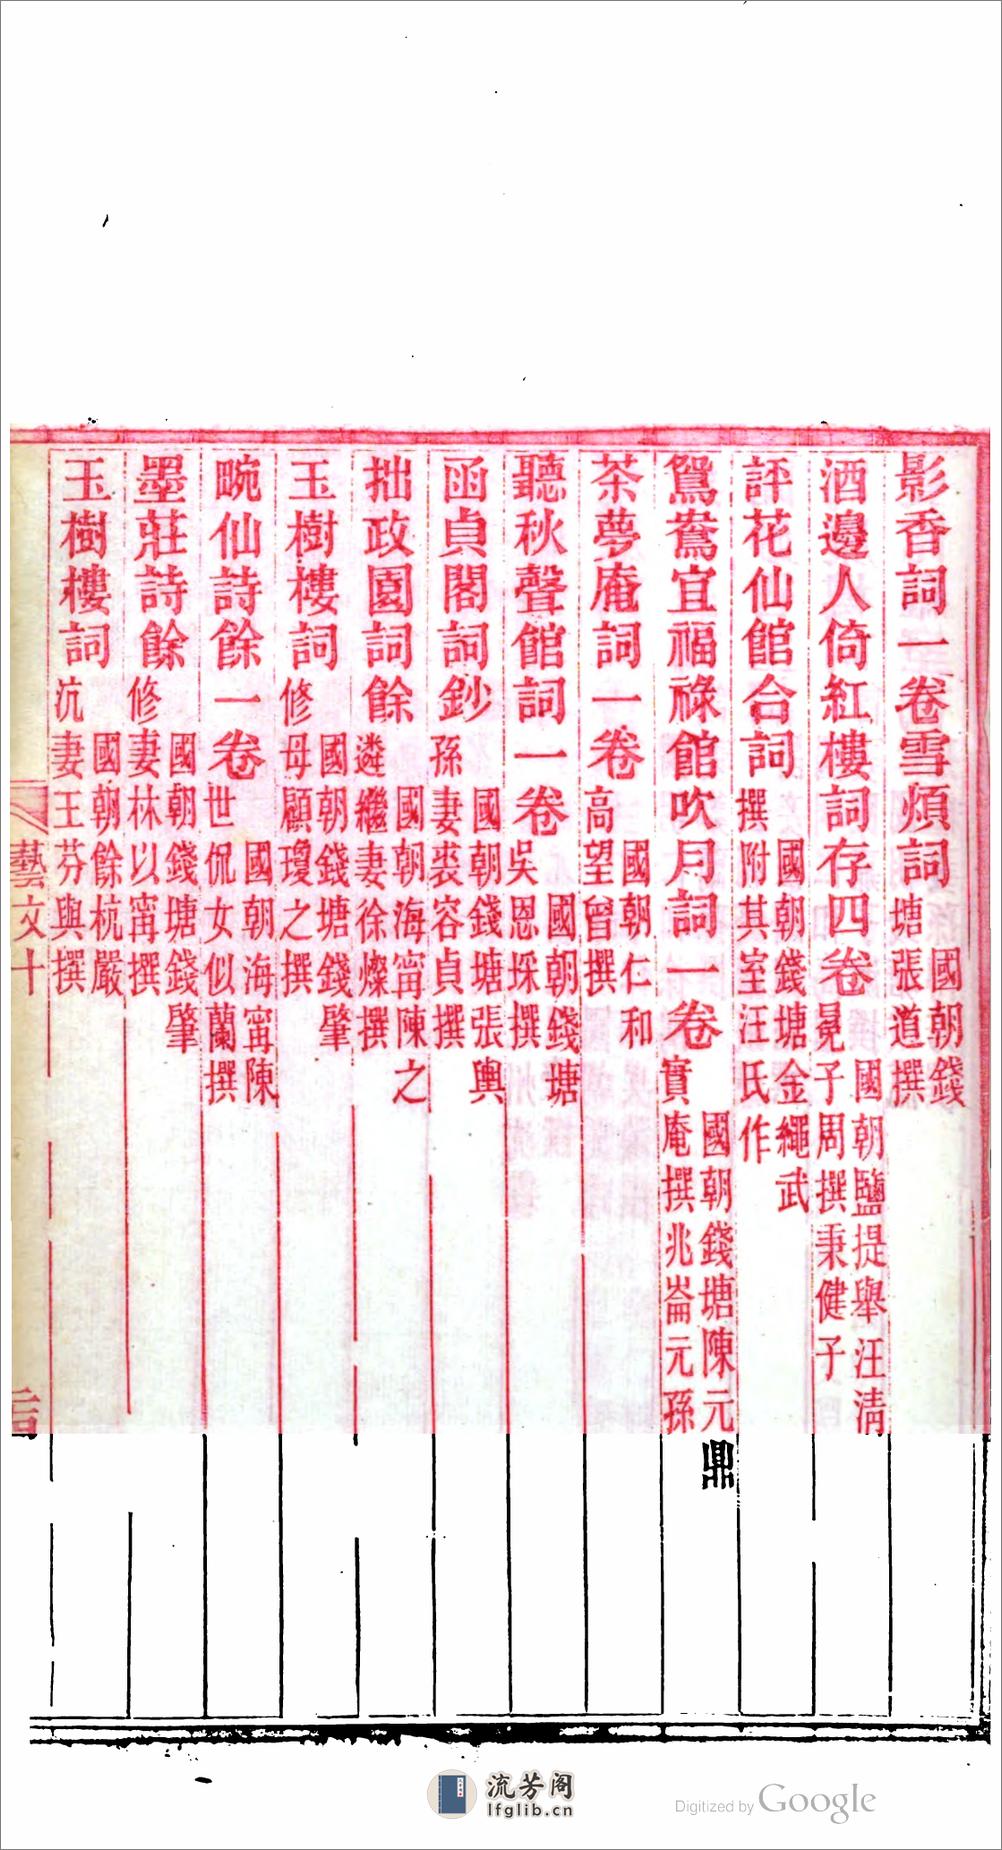 影香詞一卷雪煩詞國朝錢塘張道撰
酒邊人倚紅樓詞存四卷國朝鹽提舉汪清冕子周撰秉健子
評花仙館合詞國朝錢塘金繩武撰附其室汪氏作
鴛鴦宜福祿館吹月詞一卷國朝錢塘陳元鼎實庵撰兆崙元孫
茶夢庵詞一卷國朝仁和高望曾撰
聽秋聲館詞一卷國朝錢塘吳恩埰撰
函貞閣詞鈔國朝錢塘張輿孫妻裘容貞撰
拙政園詞餘國朝海甯陳之遴繼妻徐燦撰
玉樹樓詞國朝錢塘錢肇修母顧瓊之撰
畹仙詩餘一卷國朝海甯陳世侃女似蘭撰
墨莊詩餘國朝錢塘錢肇修妻林以甯撰
玉樹樓詞國朝餘杭嚴沆妻王芬與撰
藝文十
流芳阁
lfglib.cn
Digitized by Google